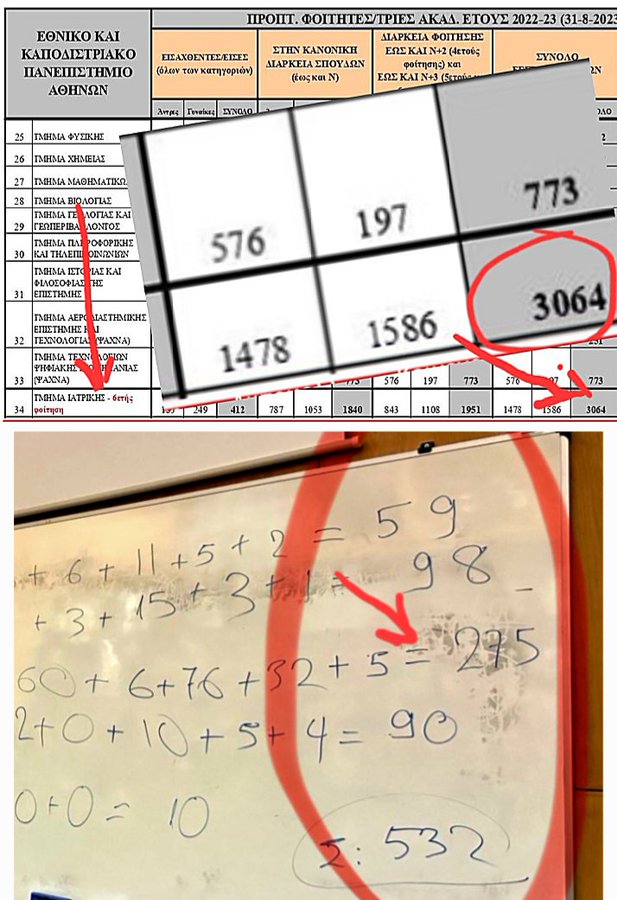 ΕΘΝΙΚΟ ΚΑΙ
ΚΑΠΟΔΙΣΤΡΙΑΚΟ
ΠΑΝΕΠΙΣΤΗΜΙΟ
ΑΘΗΝΩΝ
ΠΡΟΠΤ. ΦΟΙΤΗΤΕΣ/ΤΡΙΕΣ ΑΚΑΔ. ΕΤΟΥΣ 2022-23 (31-8-2023
ΕΙΣΑΧΘΕΝΤΕΣ/ΕΙΣΕΣ
(όλων των κατηγοριών)
ΣΤΗΝ ΚΑΝΟΝΙΚΗ
ΔΙΑΡΚΕΙΑ ΣΠΟΥΔΩΝ
(έως και Ν)
ΔΙΑΡΚΕΙΑ ΦΟΙΤΗΣΗΣ
ΕΩΣ ΚΑΙ Ν+2 (4ετούς
φοίτησης) και
ΕΩΣ ΚΑΙ Ν+3 (5ετούς
ΣΥΝΟΛΟ
Άντρες Γυναίκες ΣΥΝΟΛΟ
25 ΤΜΗΜΑ ΦΥΣΙΚΗΣ
26 ΤΜΗΜΑ ΧΗΜΕΙΑΣ
27 ΤΜΗΜΑ ΜΑΘΗΜΑΤΙΚΩ
28 ΤΜΗΜΑ ΒΙΟΛΟΓΙΑΣ
29 ΤΜΗΜΑ ΓΕΩΛΟΓΙΑΣ ΚΑΙ
ΓΕΩΠΕΡΙΒΑΛΛΟΝΤΟΣ
30 ΤΜΗΜΑ ΠΛΗΡΟΦΟΡΙΚΗΣ
ΚΑΙ ΤΗΛΕΠΙΚΟΙΝΩΝΙΩΝ
31 ΤΜΗΜΑ ΙΣΤΟΡΙΑΣ ΚΑΙ
ΦΙΛΟΣΟΦΙΑΣ ΤΗΣ
ΕΠΙΣΤΗΜΗΣ
32 ΤΜΗΜΑ ΑΕΡΟΔΙΑΣΤΗΜΙΚΗΣ
ΕΠΙΣΤΗΜΗΣ ΚΑΙ
ΤΕΧΝΟΛΟΓΙΑΣ (ΨΑΧΝΑ)
33 ΤΜΗΜΑ ΤΕΧΝΟΛΟΓΙΩΝ
ΨΗΦΙΑΚΗΣ ΒΙΟΜΗΧΑΝΙΑΣ
(ΨΑΧΝΑ)
773 576 197 773 576 197 773
34 ΤΜΗΜΑ ΙΑΤΡΙΚΗΣ - 6ετής
φοίτηση
249 412 787 1053 1840 843 1108 1951 1478 1586 3064
576 197 773
1478 1586 3064
+ 6 + 11 + 5 + 2 = 59
+ 3 + 15 + 3 + 1 = 98
60 + 6 + 76 + 32 + 5 = 275
2 + 0 + 10 + 5 + 4 = 90
0 + 0 = 10
Σ: 532